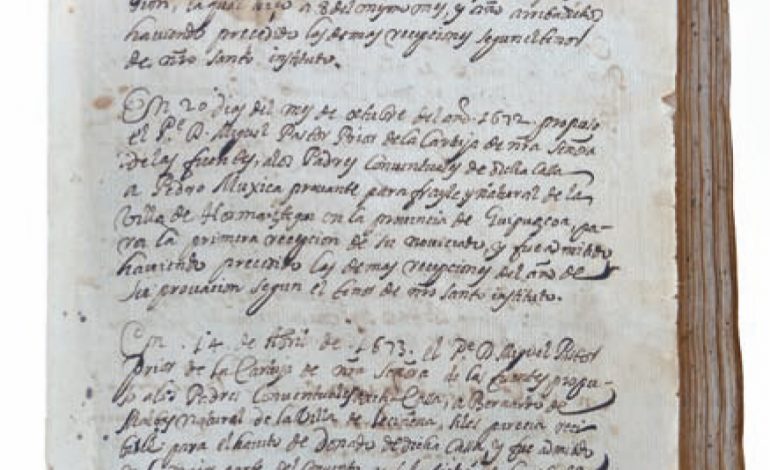 gion, la qual hizo a 8 del mymo mes, y año arribadicho
haviendo precedido las demas recepciones segun el tenor
de nro santo instituto.
En 20 dias del mes de octubre del año 1672 propuso
el Pe. D. Miguel Pastor Prior de la Cartuja de nra Señora
de las fuentes, alos Padres Conventuales de dicha Casa
a Pedro Muxica provante para frayle y natural de la
Villa de Hormaiztegui en la provincia de Guipuzcoa, pa
ra la primera recepcion de su noviciado, y fue admitido
haviendo precedido las demas recepciones del año de
su provacion segun el tenor de nro santo instituto.
En 14 de Abril de 1673. el Pe. D. Miguel Pastor
prior de la Cartuja de nra Señora de las fuentes, propu
so alos Padres Conventuales de dicha Casa, a Bernardo de
natural de la Villa de Leciñena, si les parecia reci
bible para el havito de Donado de dicha Casa, y fue admitido